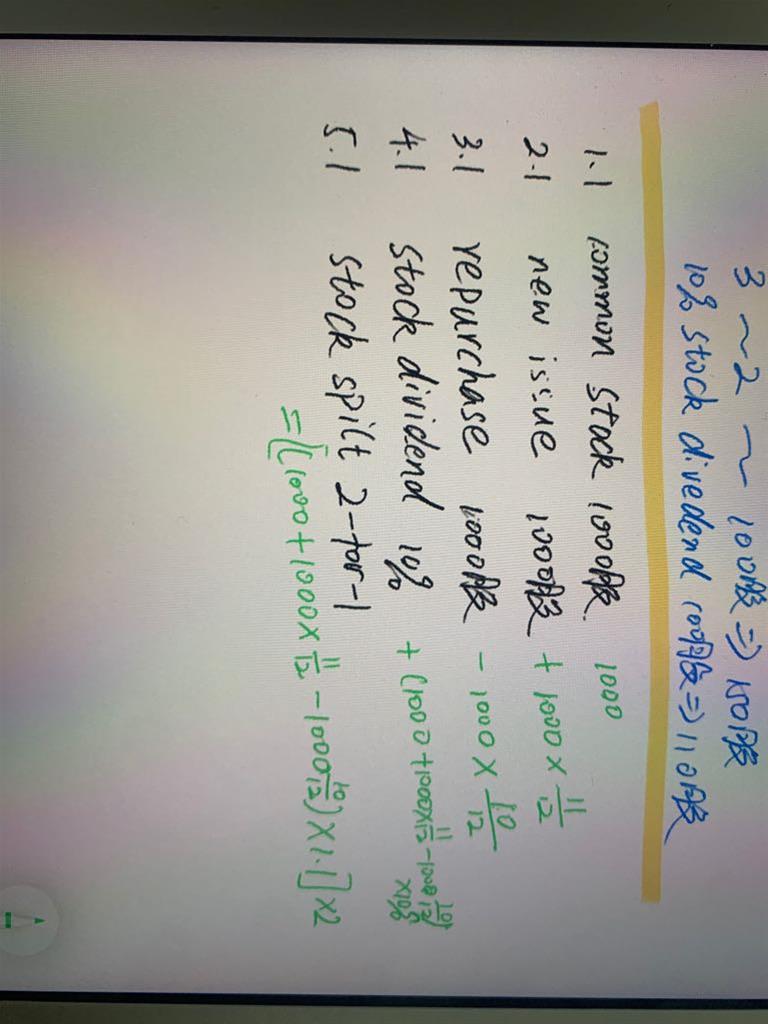 3 ~ 2 ~ 100股 => 150股
10% stock divedend 100股 => 110股
1.1 common stock 1000股. 1000
2.1 new issue 1000股 + 1000 × 11/12
3.1 repurchase 1000股 - 1000 × 10/12
4.1 stock dividend 10% + (1000 + 1000 × 11/12 - 1000 10/12) × 10%
5.1 stock spilt 2-for-1
= [(1000 + 1000 × 11/12 - 1000 10/12) × 1.1] × 2